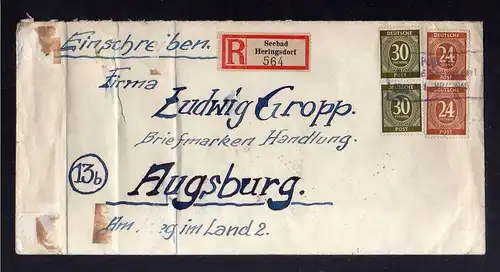 Einschreiben.
R
Seebad
Heringsdorf
564
DEUTSCHE
30
PFENNIG
POST
DEUTSCHE
24
DEUTSCHE
30
PFENNIG
POST
DEUTSCHE
24
POST
Firma
Ludwig Gropp.
Briefmarken Handlung.
13b
Augsburg.
Am. g im Land 2.